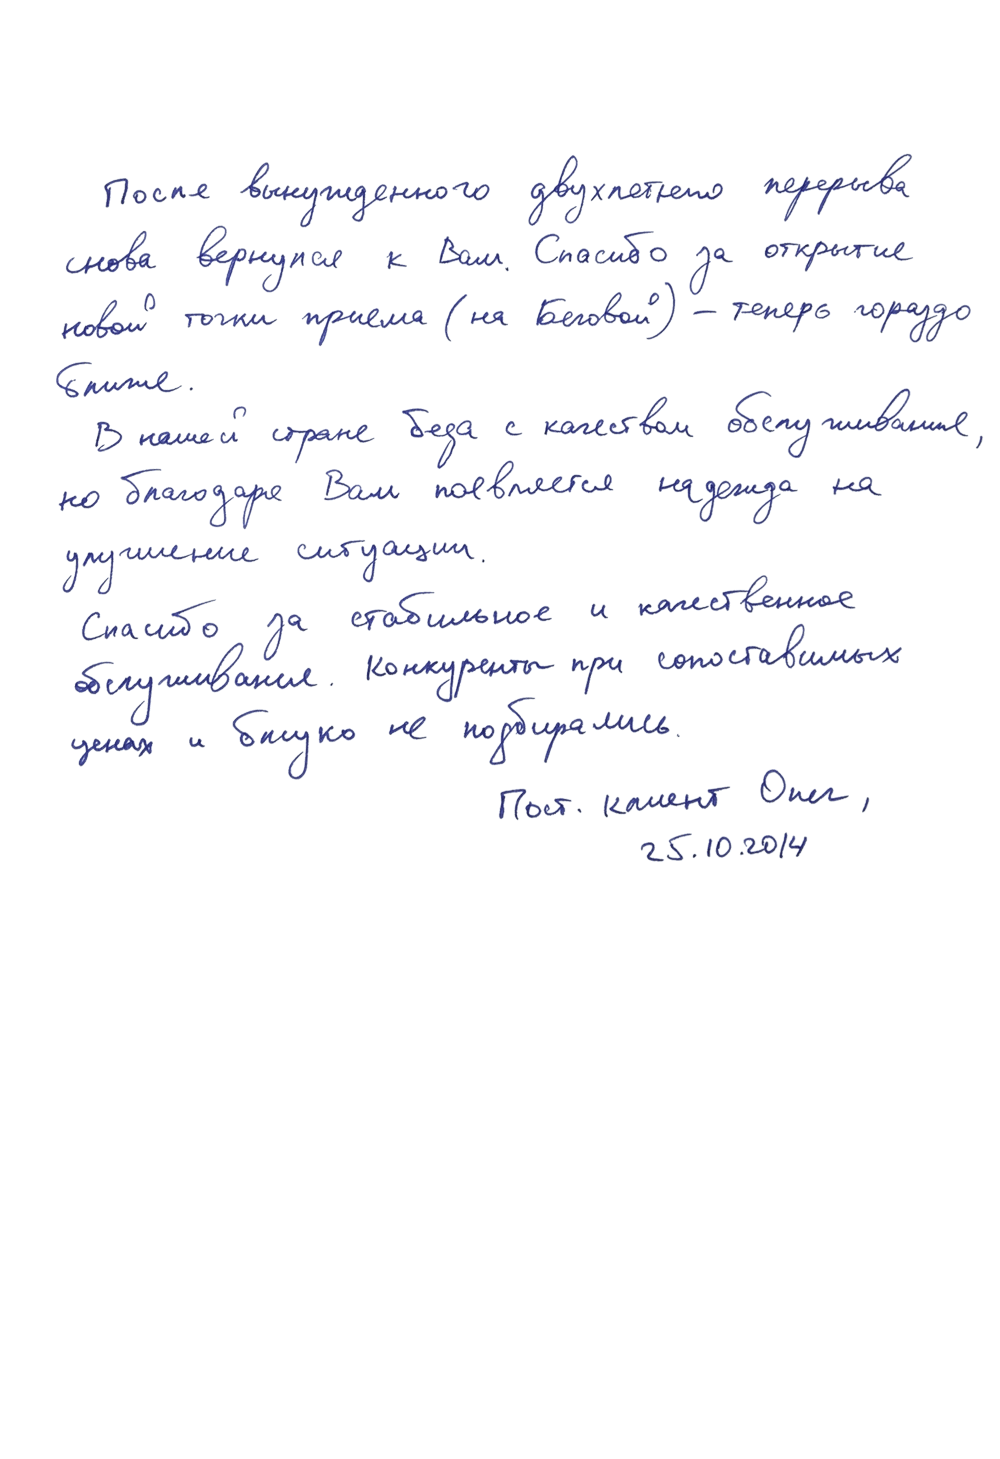 После вынужденного двухлетнего перерыва
снова вернулся к Вам. Спасибо за открытие
новой точки приема (на Беговой) – теперь гораздо
ближе.
В нашей стране беда с качеством обслуживания,
но благодаря Вам появляется надежда на
улучшение ситуации.
Спасибо за стабильное и качественное
обслуживание. Конкуренты при сопоставимых
ценах и близко не подбирались.
Пост. клиент Олег,
25.10.2014